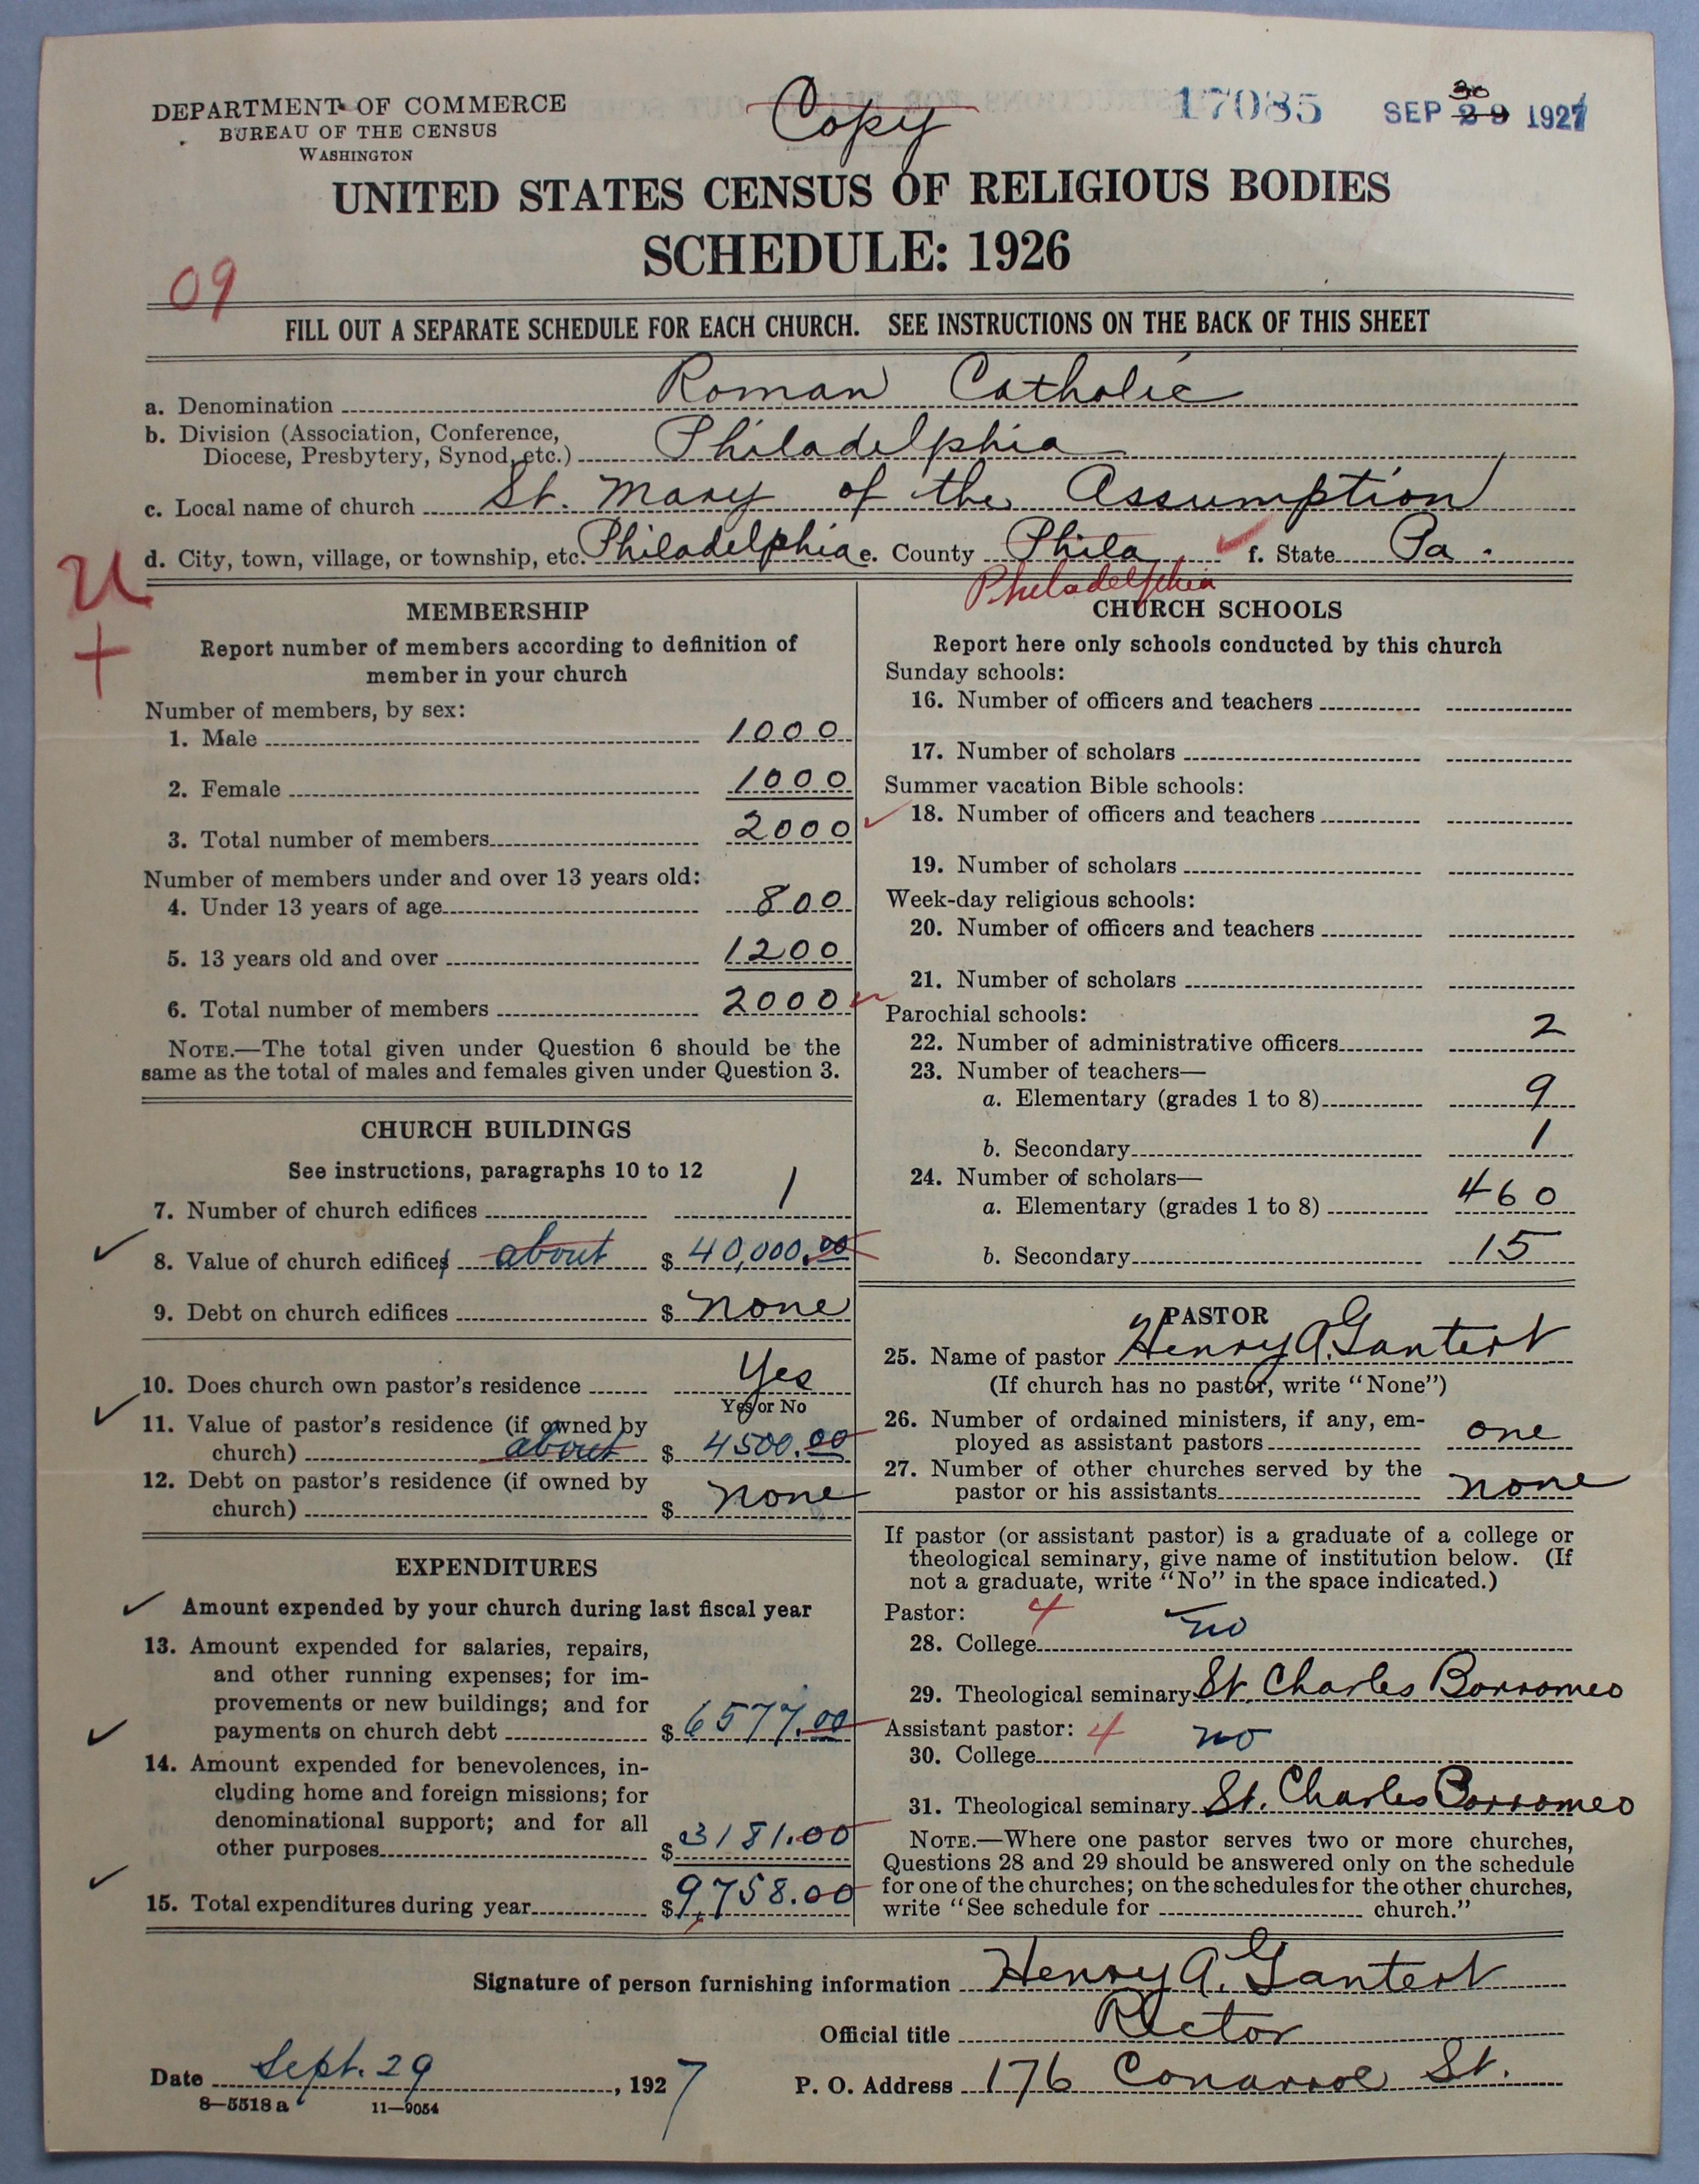 DEPARTMENT OF COMMERCE
BUREAU OF THE CENSUS
WASHINGTON
Copy
17085
SEP 29 1927
30
UNITED STATES CENSUS OF RELIGIOUS BODIES
SCHEDULE: 1926
09
FILL OUT A SEPARATE SCHEDULE FOR EACH CHURCH. SEE INSTRUCTIONS ON THE BACK OF THIS SHEET
a. Denomination Roman Catholic
b. Division (Association, Conference,
Diocese, Presbytery, Synod, etc.) Philadelphia
c. Local name of church St. Mary of the Assumption
d. City, town, village, or township, etc. Philadelphia e. County Phila. f. State Pa.
Philadelphia
U
+
MEMBERSHIP
Report number of members according to definition of
member in your church
Number of members, by sex:
1. Male 1000
2. Female 1000
3. Total number of members 2000
Number of members under and over 13 years old:
4. Under 13 years of age 800
5. 13 years old and over 1200
6. Total number of members 2000
NOTE.—The total given under Question 6 should be the
same as the total of males and females given under Question 3.
CHURCH BUILDINGS
See instructions, paragraphs 10 to 12
7. Number of church edifices 1
8. Value of church edifices about $ 40,000.00
9. Debt on church edifices $ none
10. Does church own pastor's residence Yes
Yes or No
11. Value of pastor's residence (if owned by
church) about $ 4500.00
12. Debt on pastor's residence (if owned by
church) $ none
EXPENDITURES
Amount expended by your church during last fiscal year
13. Amount expended for salaries, repairs,
and other running expenses; for im-
provements or new buildings; and for
payments on church debt $ 6577.00
14. Amount expended for benevolences, in-
cluding home and foreign missions; for
denominational support; and for all
other purposes $ 3181.00
15. Total expenditures during year $ 9,758.00
CHURCH SCHOOLS
Report here only schools conducted by this church
Sunday schools:
16. Number of officers and teachers
17. Number of scholars
Summer vacation Bible schools:
18. Number of officers and teachers
19. Number of scholars
Week-day religious schools:
20. Number of officers and teachers
21. Number of scholars
Parochial schools:
22. Number of administrative officers 2
23. Number of teachers—
a. Elementary (grades 1 to 8) 9
b. Secondary 1
24. Number of scholars—
a. Elementary (grades 1 to 8) 460
b. Secondary 15
PASTOR
25. Name of pastor Henry A. Gantert
(If church has no pastor, write "None")
26. Number of ordained ministers, if any, em-
ployed as assistant pastors one
27. Number of other churches served by the
pastor or his assistants none
If pastor (or assistant pastor) is a graduate of a college or
theological seminary, give name of institution below. (If
not a graduate, write "No" in the space indicated.)
Pastor: 4
28. College no
29. Theological seminary St. Charles Borromeo
Assistant pastor: 4
30. College no
31. Theological seminary St. Charles Borromeo
NOTE.—Where one pastor serves two or more churches,
Questions 28 and 29 should be answered only on the schedule
for one of the churches; on the schedules for the other churches,
write "See schedule for church."
Signature of person furnishing information Henry A. Gantert
Official title Rector
Date Sept. 29, 1927
P. O. Address 176 Conarroe St.
8—5518a 11—9054